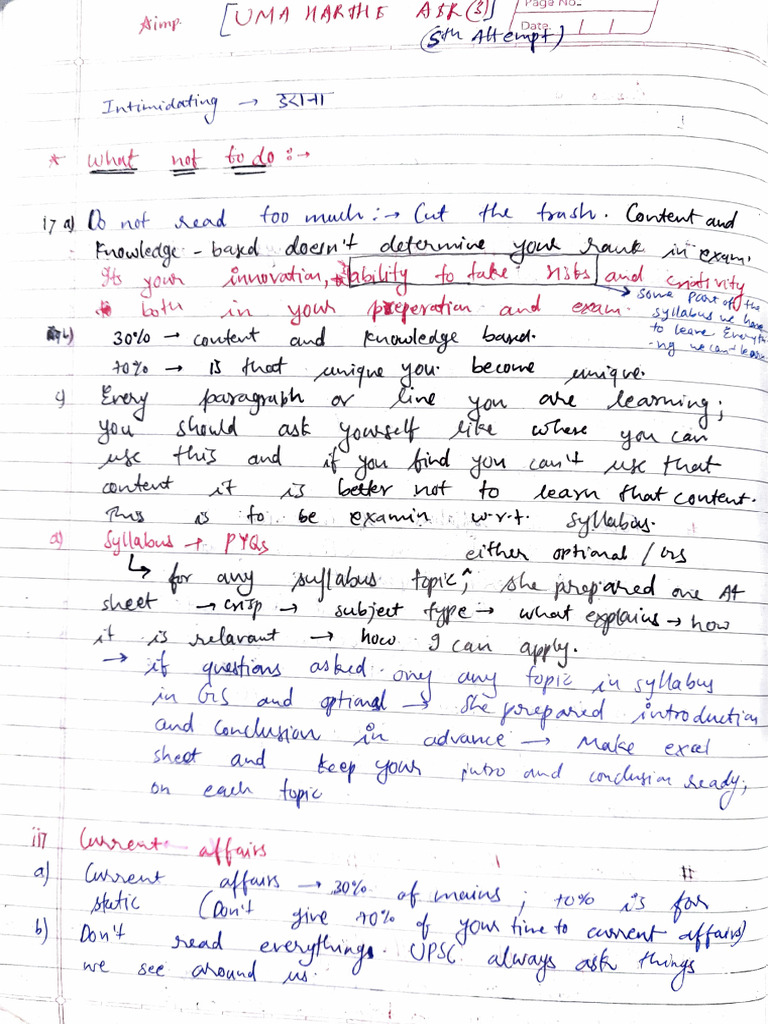 Aimp. [UMA HARTHE AIR(3)]
(5th Attempt)
Page No.
Date
Intimidating → डराना
* What not to do :→
i) a) Do not read too much :→ Cut the trash. Content and
knowledge-based doesn't determine your rank in exam.
Its your innovation, ability to take risks and criativity
both in your preperation and exam.
→ some part of the
syllabus we have
to leave Everyth
-ing we can't learn
b) 30% → content and knowledge based.
70% → is that unique you. become unique.
c) Every paragraph or line you are learning;
you should ask yourself like where you can
use this and if you find you can't use that
content it is better not to learn that content.
This is to be examin w.r.t. syllabus.
d) Syllabus → PYQs
either optional / GS
↳ for any syllabus topic^, she prepared one A4
sheet → crisp → subject type → what explains → how
it is relavant → how I can apply.
→ if questions asked ony any topic in syllabus
in GS and optional → She prepared introduction
and conclusion in advance → Make excel
sheet and keep your intro and conclusion ready;
on each topic
ii) Current affairs
a) Current affairs → 30% of mains; 70% is for
static (Don't give 70% of your time to current affairs)
b) Don't read everythings. UPSC always ask things
we see around us.